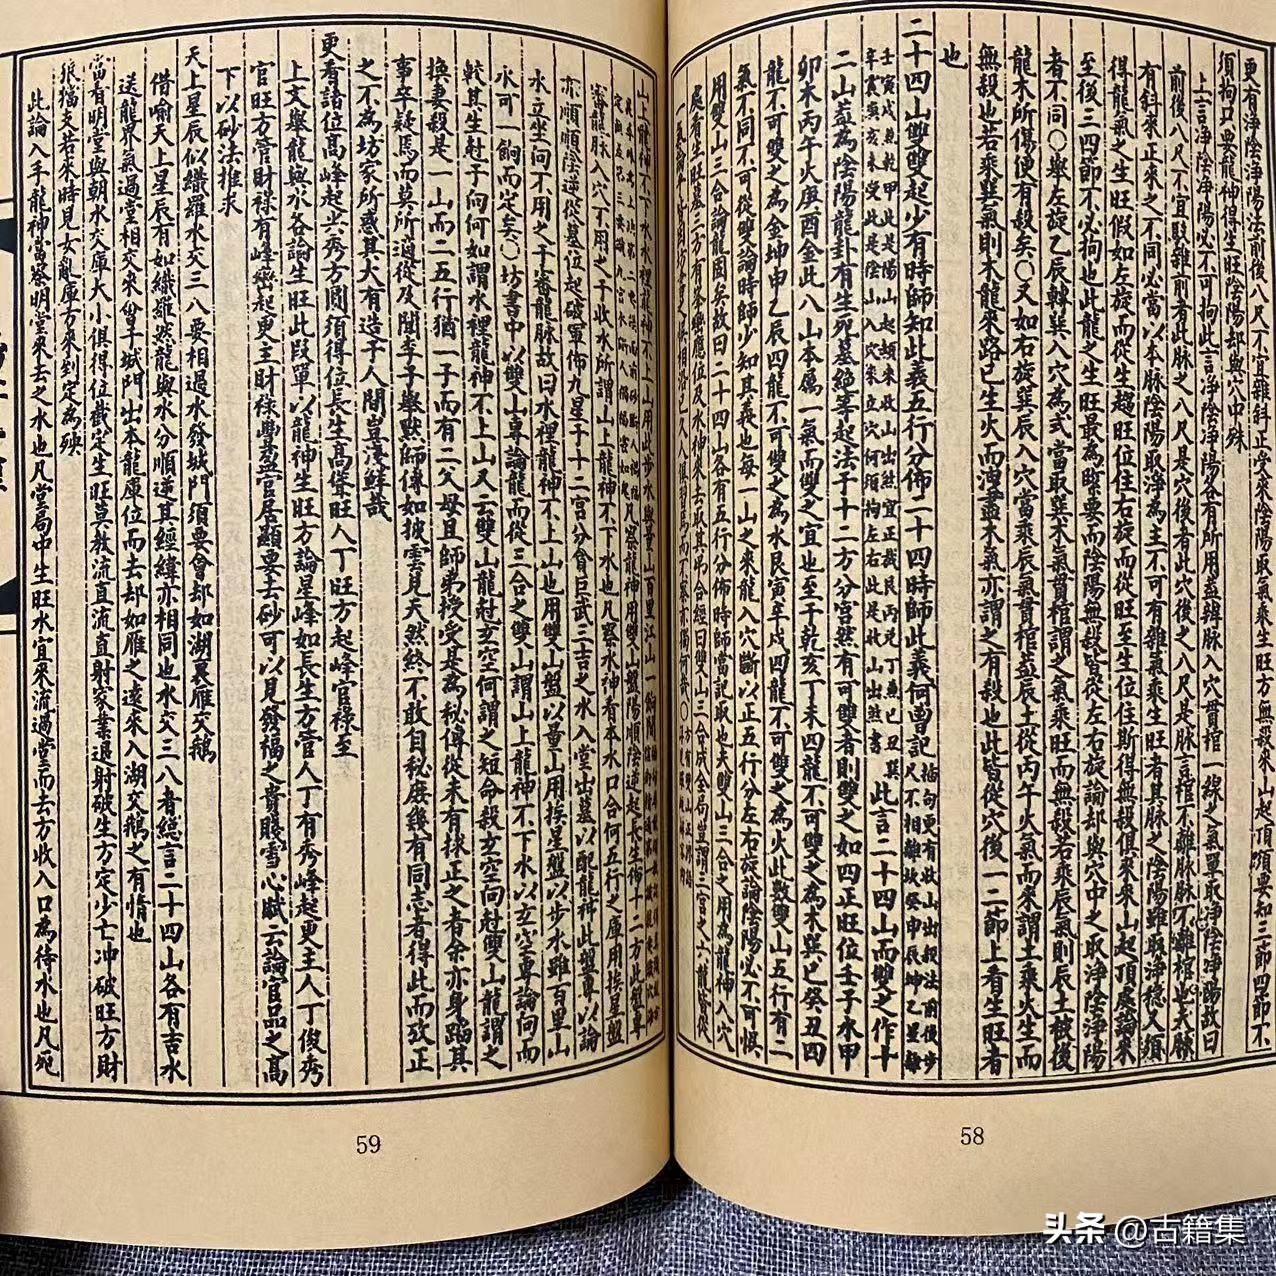 更有淨陰淨陽法前後八尺不宜雜斜正受來陰陽取氣生旺方無殺來山起頂須要知三節四節不
須拘只要龍神得生旺陰陽却與穴中殊
上言淨陰淨陽必不可拘此言淨陰淨陽各有所用蓋緣脉入穴貫棺一線之氣單取淨陰淨陽故曰
前後八尺不宜駁雜前者此脉之八尺是穴後者此穴後之八尺是脉言棺不離脉脉不離棺也
有斜來正來之不同必當以本脉陰陽取淨為主不可有雜氣乘生旺者其脉之陰陽雖取淨穩又須
得龍氣之生旺假如左旋而從生趨旺位住右旋而從旺至生位住斯得無殺俱來來山起頂處論來
至後三四節不必拘也此龍之生旺最為喫要而陰陽無殺皆從左右旋論却與穴中之取淨陰淨陽
者不同○舉左旋乙辰轉巽入穴為式當取巽木氣貫棺謂之氣乘旺而無殺若乘辰氣則辰土被後
龍木所傷便有殺矣○又如右旋巽辰入穴當乘辰氣貫棺蓋辰土從丙午火氣而來謂土乘火生而
無殺也若乘巽氣則木龍來路已生火而洩盡木氣亦謂之有殺也此皆從穴後一二節上看生旺者
也
二十四山雙雙起少有時師知此義五行分佈二十四時師此義何曾記
此言二十四山而雙之作十
二山蓋為陰陽龍卦有生死墓絶等起法于十二方分宮然有可雙者則雙之如四正旺位壬子水甲
卯木丙午火庚酉金此八山本屬一氣而雙之宜也至于乾亥丁未四龍不可雙之為木巽巳癸丑四
龍不可雙之為金坤申乙辰四龍不可雙之為水艮寅辛戌四龍不可雙之為火此數雙山五行有二
氣不同不可從雙論時師少知其義也每一山之來龍入穴斷以正五行分左右旋論陰陽必不可恨
用雙山三合論龍圖矣故曰二十四山各有五行分佈時師當記取也夫雙山三合之用為龍神入穴
山上龍神不下水水裡龍神不上山用此步水與量山百里江山一餉間
審龍脉入穴不用之于收水所謂山上龍神不下水也凡察水神看本水口合何五行之庫用挨星盤
亦順順陰逆從墓位起破軍佈九星于十二宮分會巨武三吉之水入堂出墓以配龍神此盤專以論
水立坐向不用之于審龍脉故曰水裡龍神不上山也用雙山盤以量山用挨星盤以步水雖百里山
水可一餉而定矣○坊書中以雙山專論龍而從三合之雙山謂山上龍神不下水以玄空專論向而
較其生尅于向何如謂水裡龍神不上山又云雙山龍尅玄空何謂之短命殺玄空向尅雙山龍謂之
換妻殺是一山而二五行猶一子而有二父母且師弟授受是為秘傳從未有抹正之者余亦身蹈其
事卒疑焉而莫所適從及聞李子舉默師傳如披雲見天然終不敢自秘庶幾有同志者得此而攷正
之不為坊家所惑其大有造于人間豈淺鮮哉
更看諸位高峰起尖秀方圓須得位長生高聳旺人丁旺方起峰官祿至
上文舉龍與水各論生旺此叚單以龍神生旺方論星峰如長生方管人丁有秀峰起更主人丁俊秀
官旺方管財祿有峰巒起更主財祿豊盈官居顯要去砂可以見發福之貴賤雪心賦云論官品之高
下以砂法推求
天上星辰似織羅水交三八要相過水發城門須要會却如湖裏雁交鵝
借喻天上星辰有如織羅然龍與水分順逆其經緯亦相同也水交三八者總言二十四山各有吉水
送龍界氣過堂相交來會于城門出本龍庫位而去却如雁之遠來入湖交鵝之有情也
當看明堂與朝水交庫大小俱得位截定生旺莫教流直流直射家業退射破生方定少亡冲破旺方財
狼擋支若來時見女亂庫方來到定為殃
此論入手龍神當察明堂來去之水也凡堂局中生旺水宜來流過堂而去方收入口為待水也凡死
59
58
头条 @古籍集